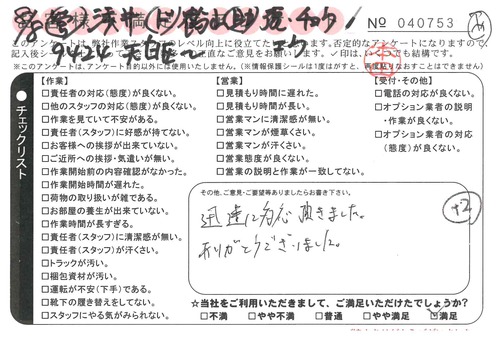 No 040753
このアンケートは、弊社作業スタッフのレベル向上に役立てたいと思います。否定的なアンケートになりますので
※このアンケートは、アンケート目的以外には使用いたしません。（※情報保護シールは1度はがすと、再度貼りなおすことはできません）
チェックリスト
【作業】
□責任者の対応（態度）が良くない。
□他のスタッフの対応（態度）が良くない。
□作業を見ていて不安がある。
□責任者（スタッフ）に好感が持てない。
□お客様への挨拶が出来ていない。
□ご近所への挨拶・気遣いが無い。
□作業開始前の内容確認がなかった。
□作業開始時間が遅れた。
□荷物の取り扱いが雑である。
□お部屋の養生が出来ていない。
□作業時間が長すぎる。
□責任者（スタッフ）に清潔感が無い。
□責任者（スタッフ）が汗くさい。
□トラックが汚い。
□梱包資材が汚い。
□運転が不安（下手）である。
□靴下の履き替えをしてない。
□スタッフにやる気がみられない。
【営業】
□見積もり時間に遅れた。
□見積もり時間が長い。
□営業マンに清潔感が無い。
□営業マンが煙草くさい。
□営業マンが汗くさい。
□営業態度が良くない。
□営業の説明と作業が一致してない。
【受付・その他】
□電話の対応が良くない。
□オプション業者の説明
・作業が良くない。
□オプション業者の対応
（態度）が良くない。
その他、ご意見・ご要望等ありましたらお書き下さい。
迅速に対応頂きました。
ありがとうございました。
+2
☆当社をご利用いただきまして、ご満足いただけたでしょうか？
□不満 □やや不満 □普通 □やや満足 □満足